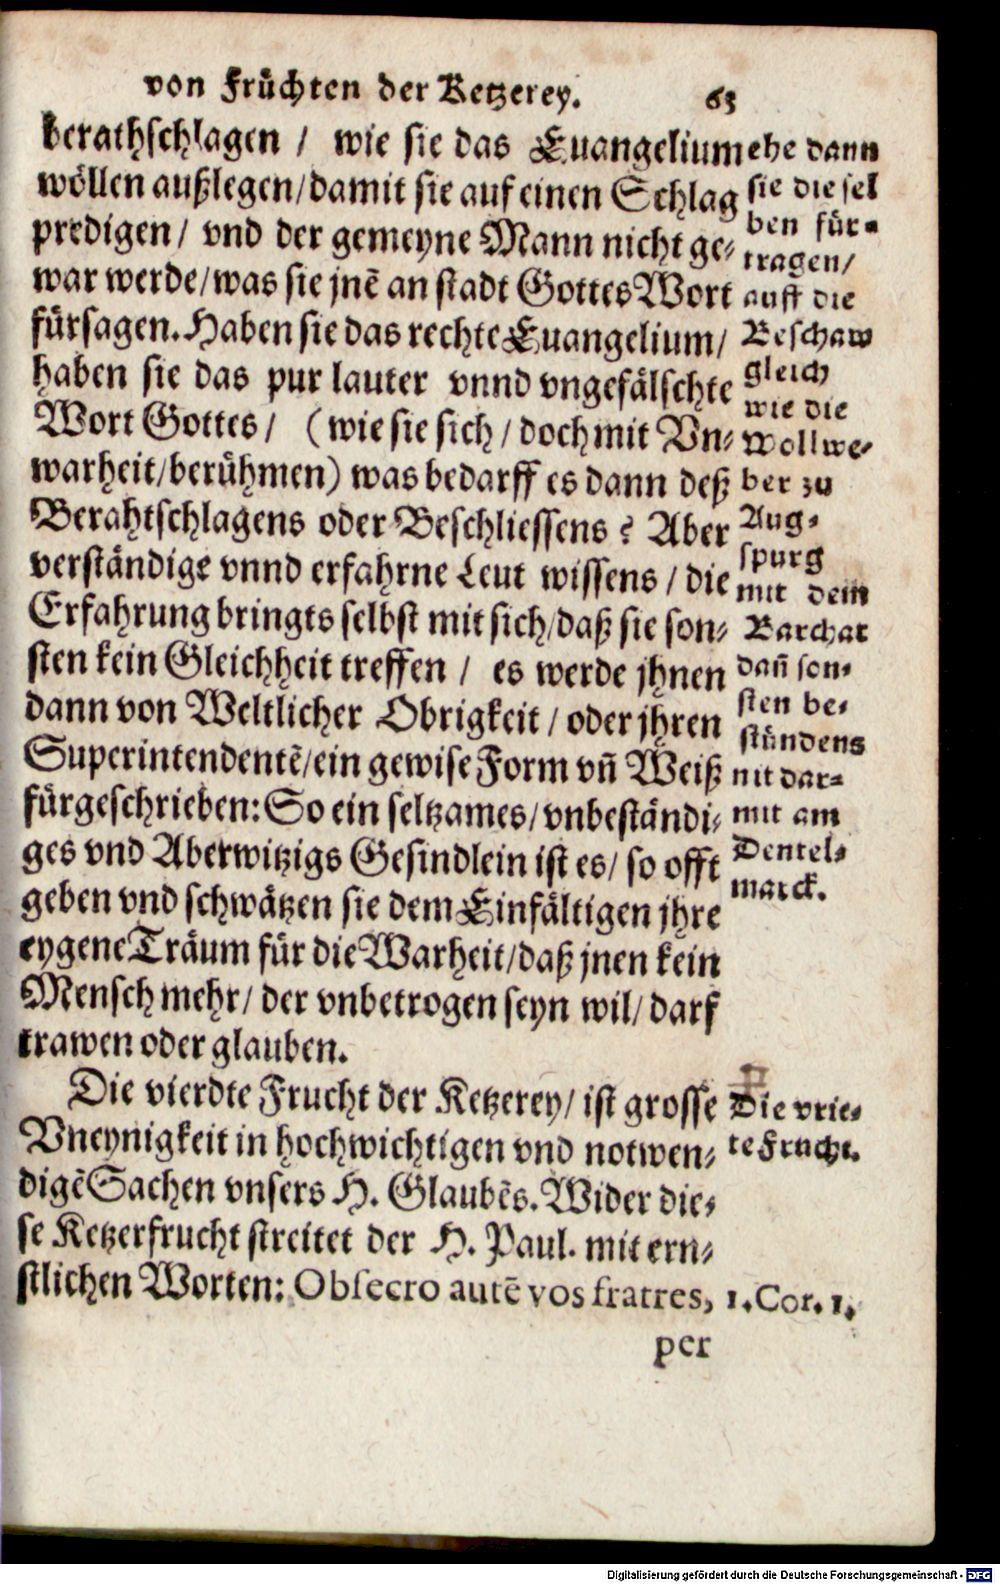 von Früchten der Ketzerey. 65
berathschlagen / wie sie das Euangelium
wöllen außlegen/damit sie auf einen Schlag
predigen/ vnd der gemeyne Mann nicht ge-
war werde/was sie jnẽ an stadt Gottes Wort
fürsagen. Haben sie das rechte Euangelium/
haben sie das pur lauter vnnd vngefälschte
Wort Gottes/ (wie sie sich/doch mit Vn-
warheit/berühmen) was bedarff es dann deß
Berahtschlagens oder Beschliessens? Aber
verständige vnnd erfahrne Leut wissens/die
Erfahrung bringts selbst mit sich/daß sie son-
sten kein Gleichheit treffen/ es werde jhnen
dann von Weltlicher Obrigkeit/oder jhren
Superintendentẽ/ein gewise Form vñ Weiß
fürgeschrieben: So ein seltzames/vnbeständi-
ges vnd Aberwitzigs Gesindlein ist es/ so offt
geben vnd schwätzen sie dem Einfältigen jhre
eygene Träum für die Warheit/daß jnen kein
Mensch mehr/der vnbetrogen seyn wil/darf
trawen oder glauben.
Die vierdte Frucht der Ketzerey/ist grosse
Vneynigkeit in hochwichtigen vnd notwen-
digẽ Sachen vnsers H. Glaubẽs. Wider die-
se Ketzerfrucht streitet der H. Paul. mit ern-
stlichen Worten: Obsecro autẽ vos fratres,
per
ehe dann
sie diesel
ben für-
tragen/
auff die
Beschaw
gleich
wie die
Wollwe-
ber zu
Aug-
spurg
mit dem
Barchat
dañ son-
sten be-
stündens
nit dar-
mit am
Dentel-
marck.
Die vrie-
te Frucht.
1. Cor. 1.
Digitalisierung gefördert durch die Deutsche Forschungsgemeinschaft - DFG